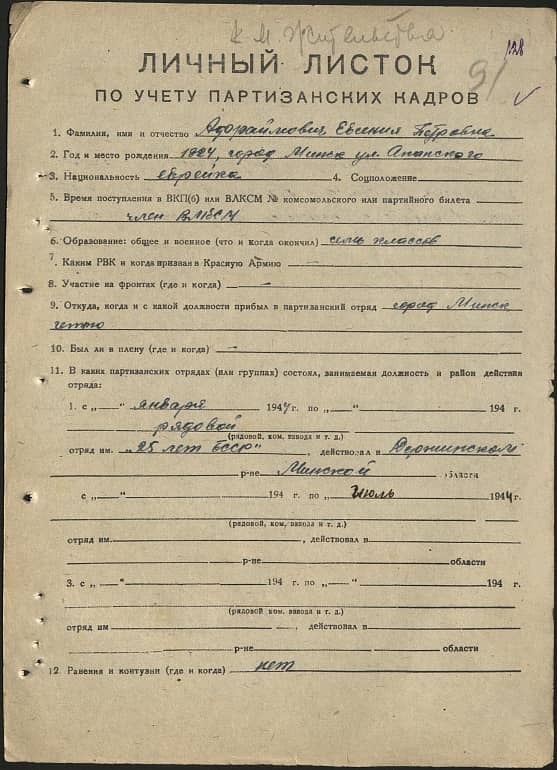 к м. жительства
128
91
ЛИЧНЫЙ ЛИСТОК
ПО УЧЕТУ ПАРТИЗАНСКИХ КАДРОВ
1. Фамилия, имя и отчество Адораймович Евгения Петровна
2. Год и место рождения 1924, город Минск ул. Апанского
3. Национальность еврейка 4. Соцположение
5. Время поступления в ВКП(б) или ВЛКСМ № комсомольского или партийного билета
член ВЛКСМ
6. Образование: общее и военное (что и когда окончил) семь классов
7. Каким РВК и когда призван в Красную Армию —
8. Участие на фронтах (где и когда) —
9. Откуда, когда и с какой должности прибыл в партизанский отряд город Минск
гетто
10. Был ли в плену (где и когда) —
11. В каких партизанских отрядах (или группах) состоял, занимаемая должность и район действия
отряда:
1. с „—“ января 1944 г. по „—“ 194 г.
рядовой
(рядовой, ком. взвода и т. д.)
отряд им. „25 лет БССР“, действовал в Дзержинском
р-не Минской области
с „—“ 194 г. по „—“ июль 1944 г.
(рядовой, ком. взвода и т. д.)
отряд им. , действовал в
р-не области
3. с „—“ 194 г. по „—“ 194 г.
(рядовой, ком. взвода и т. д.)
отряд им , действовал в
р-не области
12. Ранения и контузии (где и когда) нет